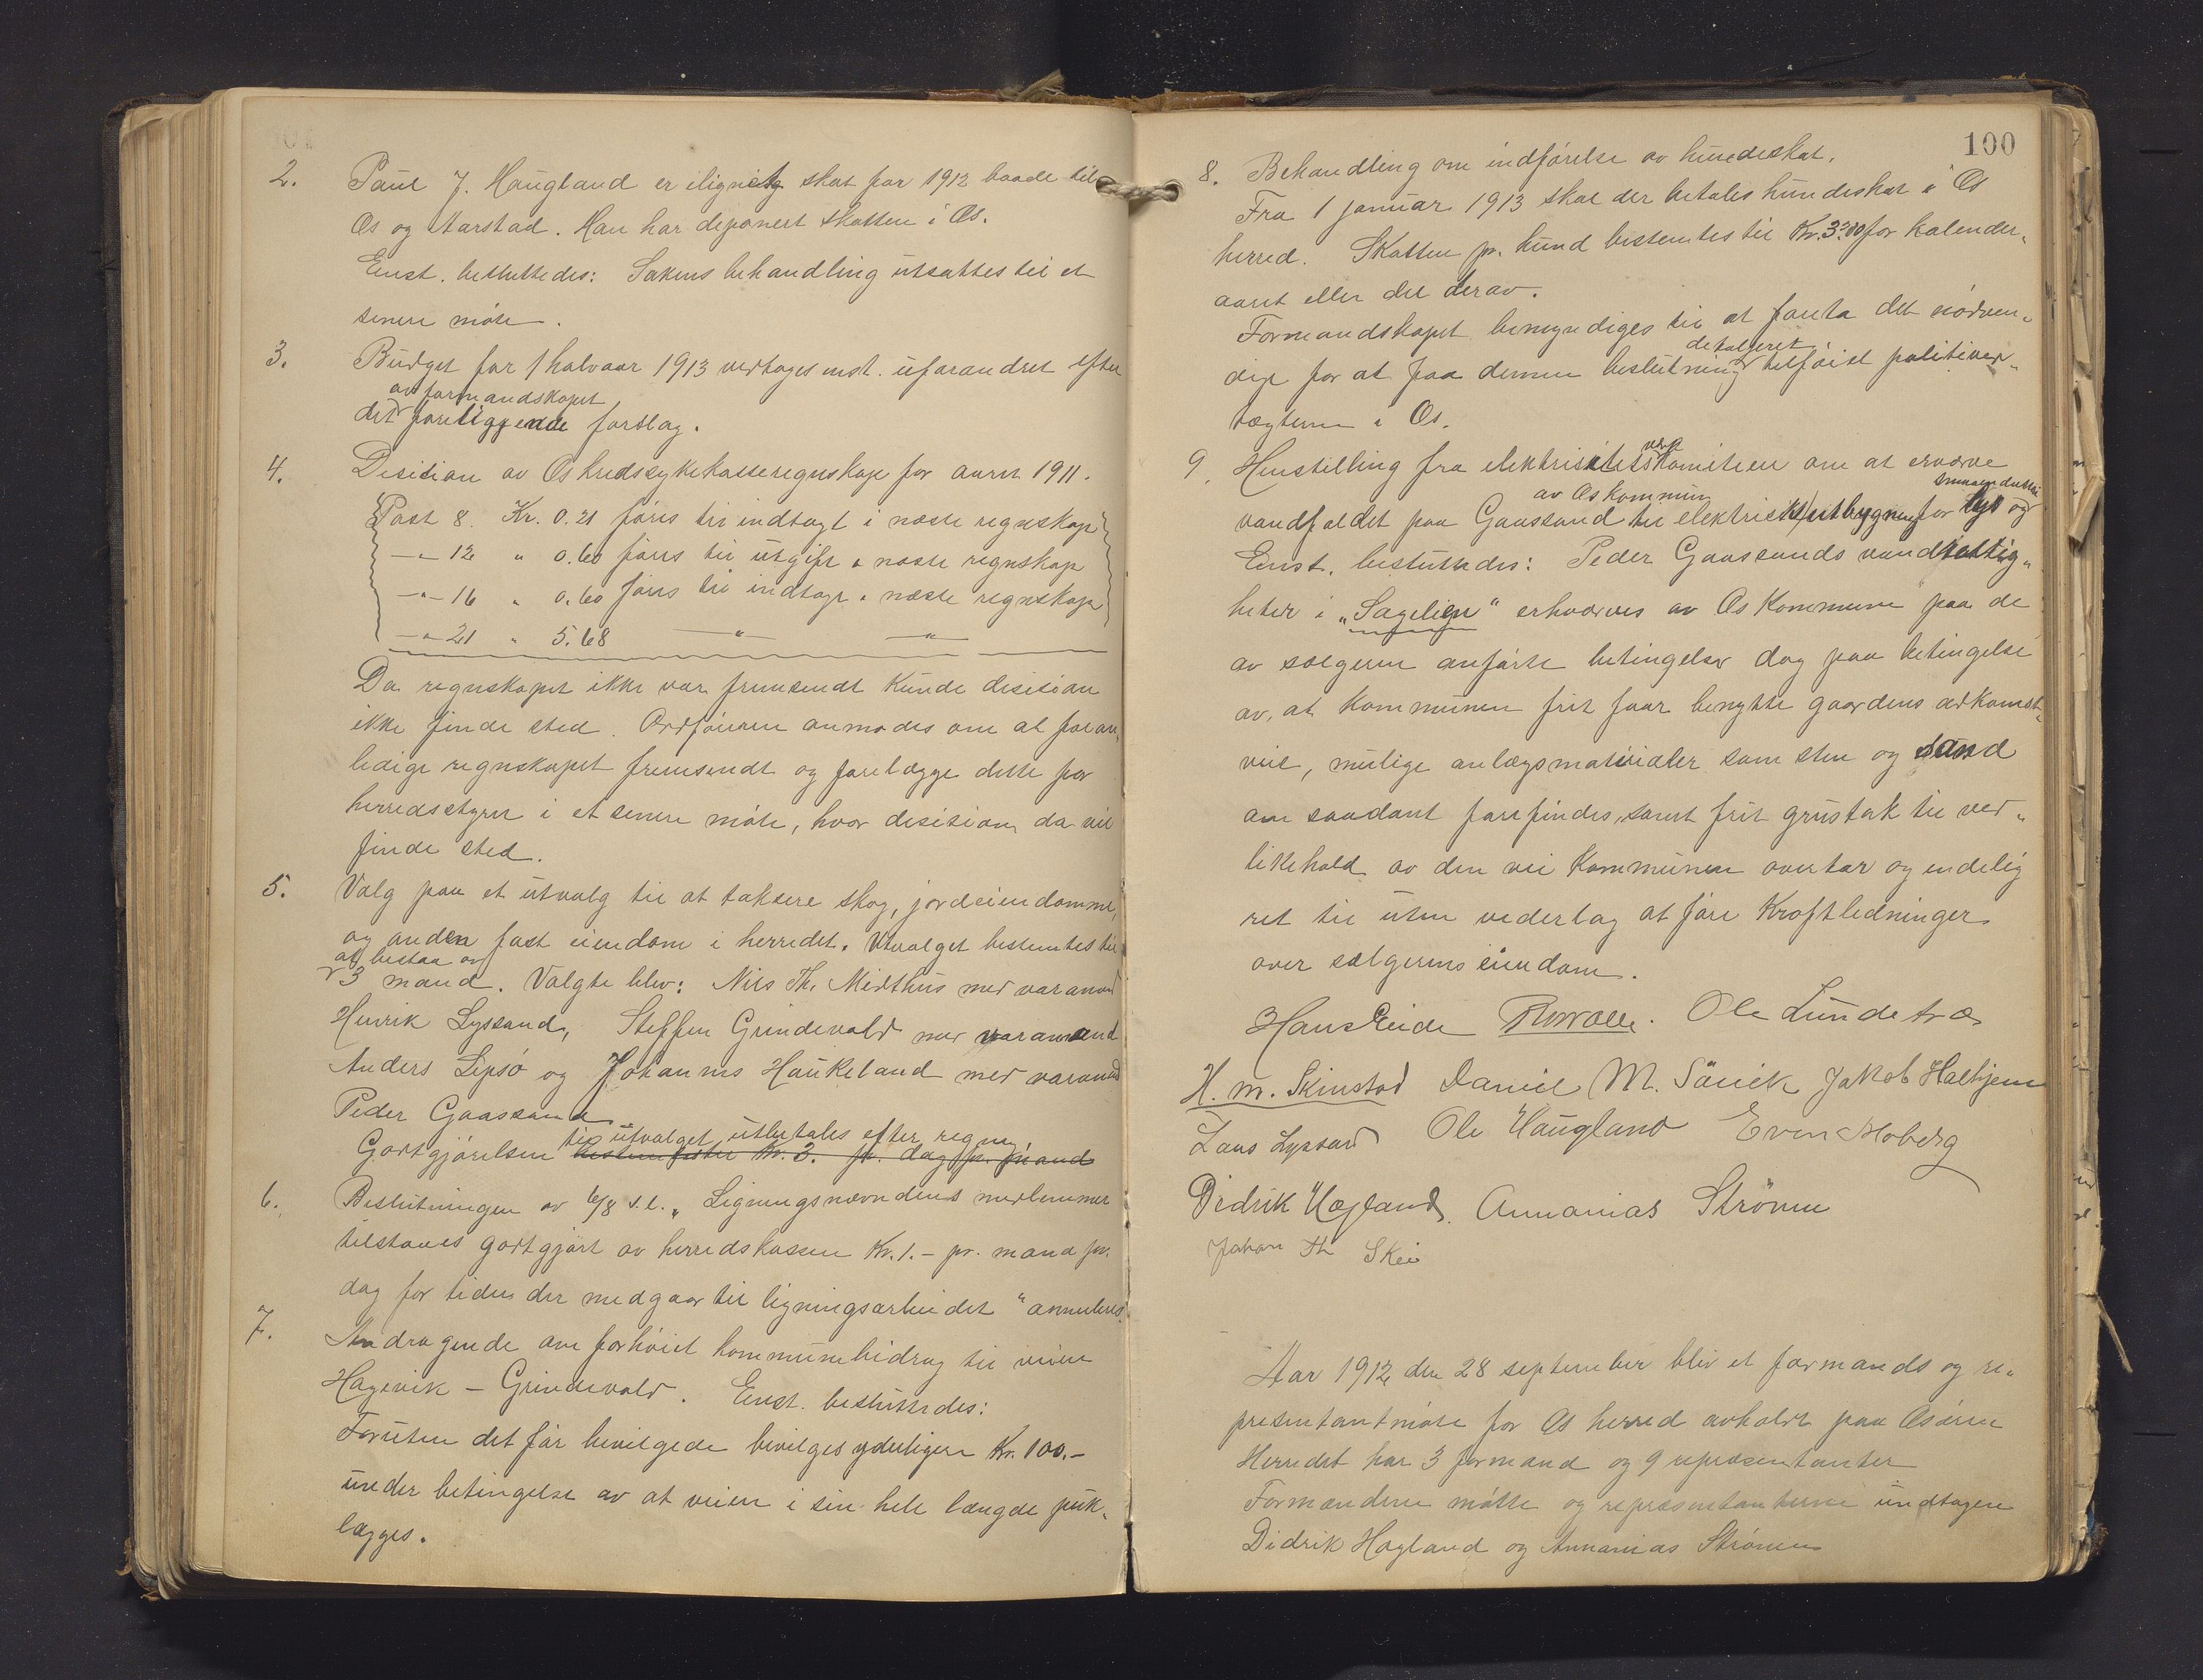 2. Paul J. Haugland er ilignet skat for 1912 baade til
Os og Aarstad. Han har deponert skatten i Os.
Enst. besluttedes: Sakens behandling utsættes til et
senere møte.
3. Budget for 1 halvaar 1913 vedtages enst. uforandret efter
av formandskapet
det foreliggende forslag.
4. Desision av Os kredssykekasseregnskap for aaret 1911.
Post 8. Kr. 0.21 føres til indtægt i næste regnskap
-"- 12 " 0.60 føres til utgift i næste regnskap
-"- 16 " 0.60 føres til indtægt i næste regnskap
-"- 21 " 5.68 —"— —"—
Da regnskapet ikke var fremsendt kunde desision
ikke finde sted. Ordføreren anmodes om at foran-
ledige regnskapet fremsendt og forelægge dette for
herredsstyret i et senere møte, hvor desision da vil
finde sted.
5. Valg paa et utvalg til at taksere skog, jordeiendomme,
og anden fast eiendom i herredet. Utvalget bestemtes til
at bestaa av
3 mand. Valgte blev: Nils Th. Midthus med varamand
Henrik Lyssand, Steffen Grindevold med varamand
Anders Lepsø og Johannes Haukeland med varamand
Peder Gaassand
til utvalget utbetales efter regning.
Godtgjørelsen bestemtes til kr. 3. pr. dag pr. mand
6. Beslutningen av 6/8 s.l. „Ligningsnævndens medlemmer
tilstaaes godtgjørt av herredskassen Kr. 1.- pr. mand pr.
dag for tiden der medgaar til ligningsarbeidet" annuleres.
7. Andragende om forhøiet kommunebidrag til veien
Hagevik – Grindevold. Enst. besluttedes:
Foruten det før bevilgede bevilges yderligere Kr. 100.-
under betingelse av at veien i sin hele længde puk-
lægges.
100
8. Behandling om indførelse av hundeskat.
Fra 1 januar 1913 skal der betales hundeskat i Os
herred. Skatten pr. hund bestemtes til Kr. 3.00 for kalender-
aaret eller del derav.
Formandskapet bemyndiges til at foreta det nødven-
detaljeret
dige for at faa denne beslutning tilføiet politived-
tægterne i Os.
9. Henstilling fra elektrisitetskomiteen om at erværve
av Os kommune
vandfaldet paa Gaassand til elektrisk utbygning for lys og
Enst. besluttedes: Peder Gaassands vandrettig-
heter i „Sagelien" erhværves av Os Kommune paa de
av sælgeren anførte betingelser dog paa betingelse
av, at kommunen frit faar benytte gaardens adkomst-
vei, mulige anlægsmaterialer som sten og sand
om saadant forefindes, samt frit grustak til ved-
likehold av den vei kommunen overtar og endelig
ret til uten vederlag at føre Kraftledninger
over sælgerens eiendom.
Hans Eide Ole Lundetræ
H. M. Skinstad Daniel M. Søvik Jakob Halhjem
Lars Lyssand Ole Haugland Even Moberg
Didrik Hegland. Annanias Strønen
Johan Th Skeie
Aar 1912 den 28 september blev et formands og re-
presentantmøte for Os herred avholdt paa Osøren
Herredet har 3 formænd og 9 repræsentanter
Formændene møtte og repræsentanterne undtagen
Didrik Hegland og Annanias Strønen